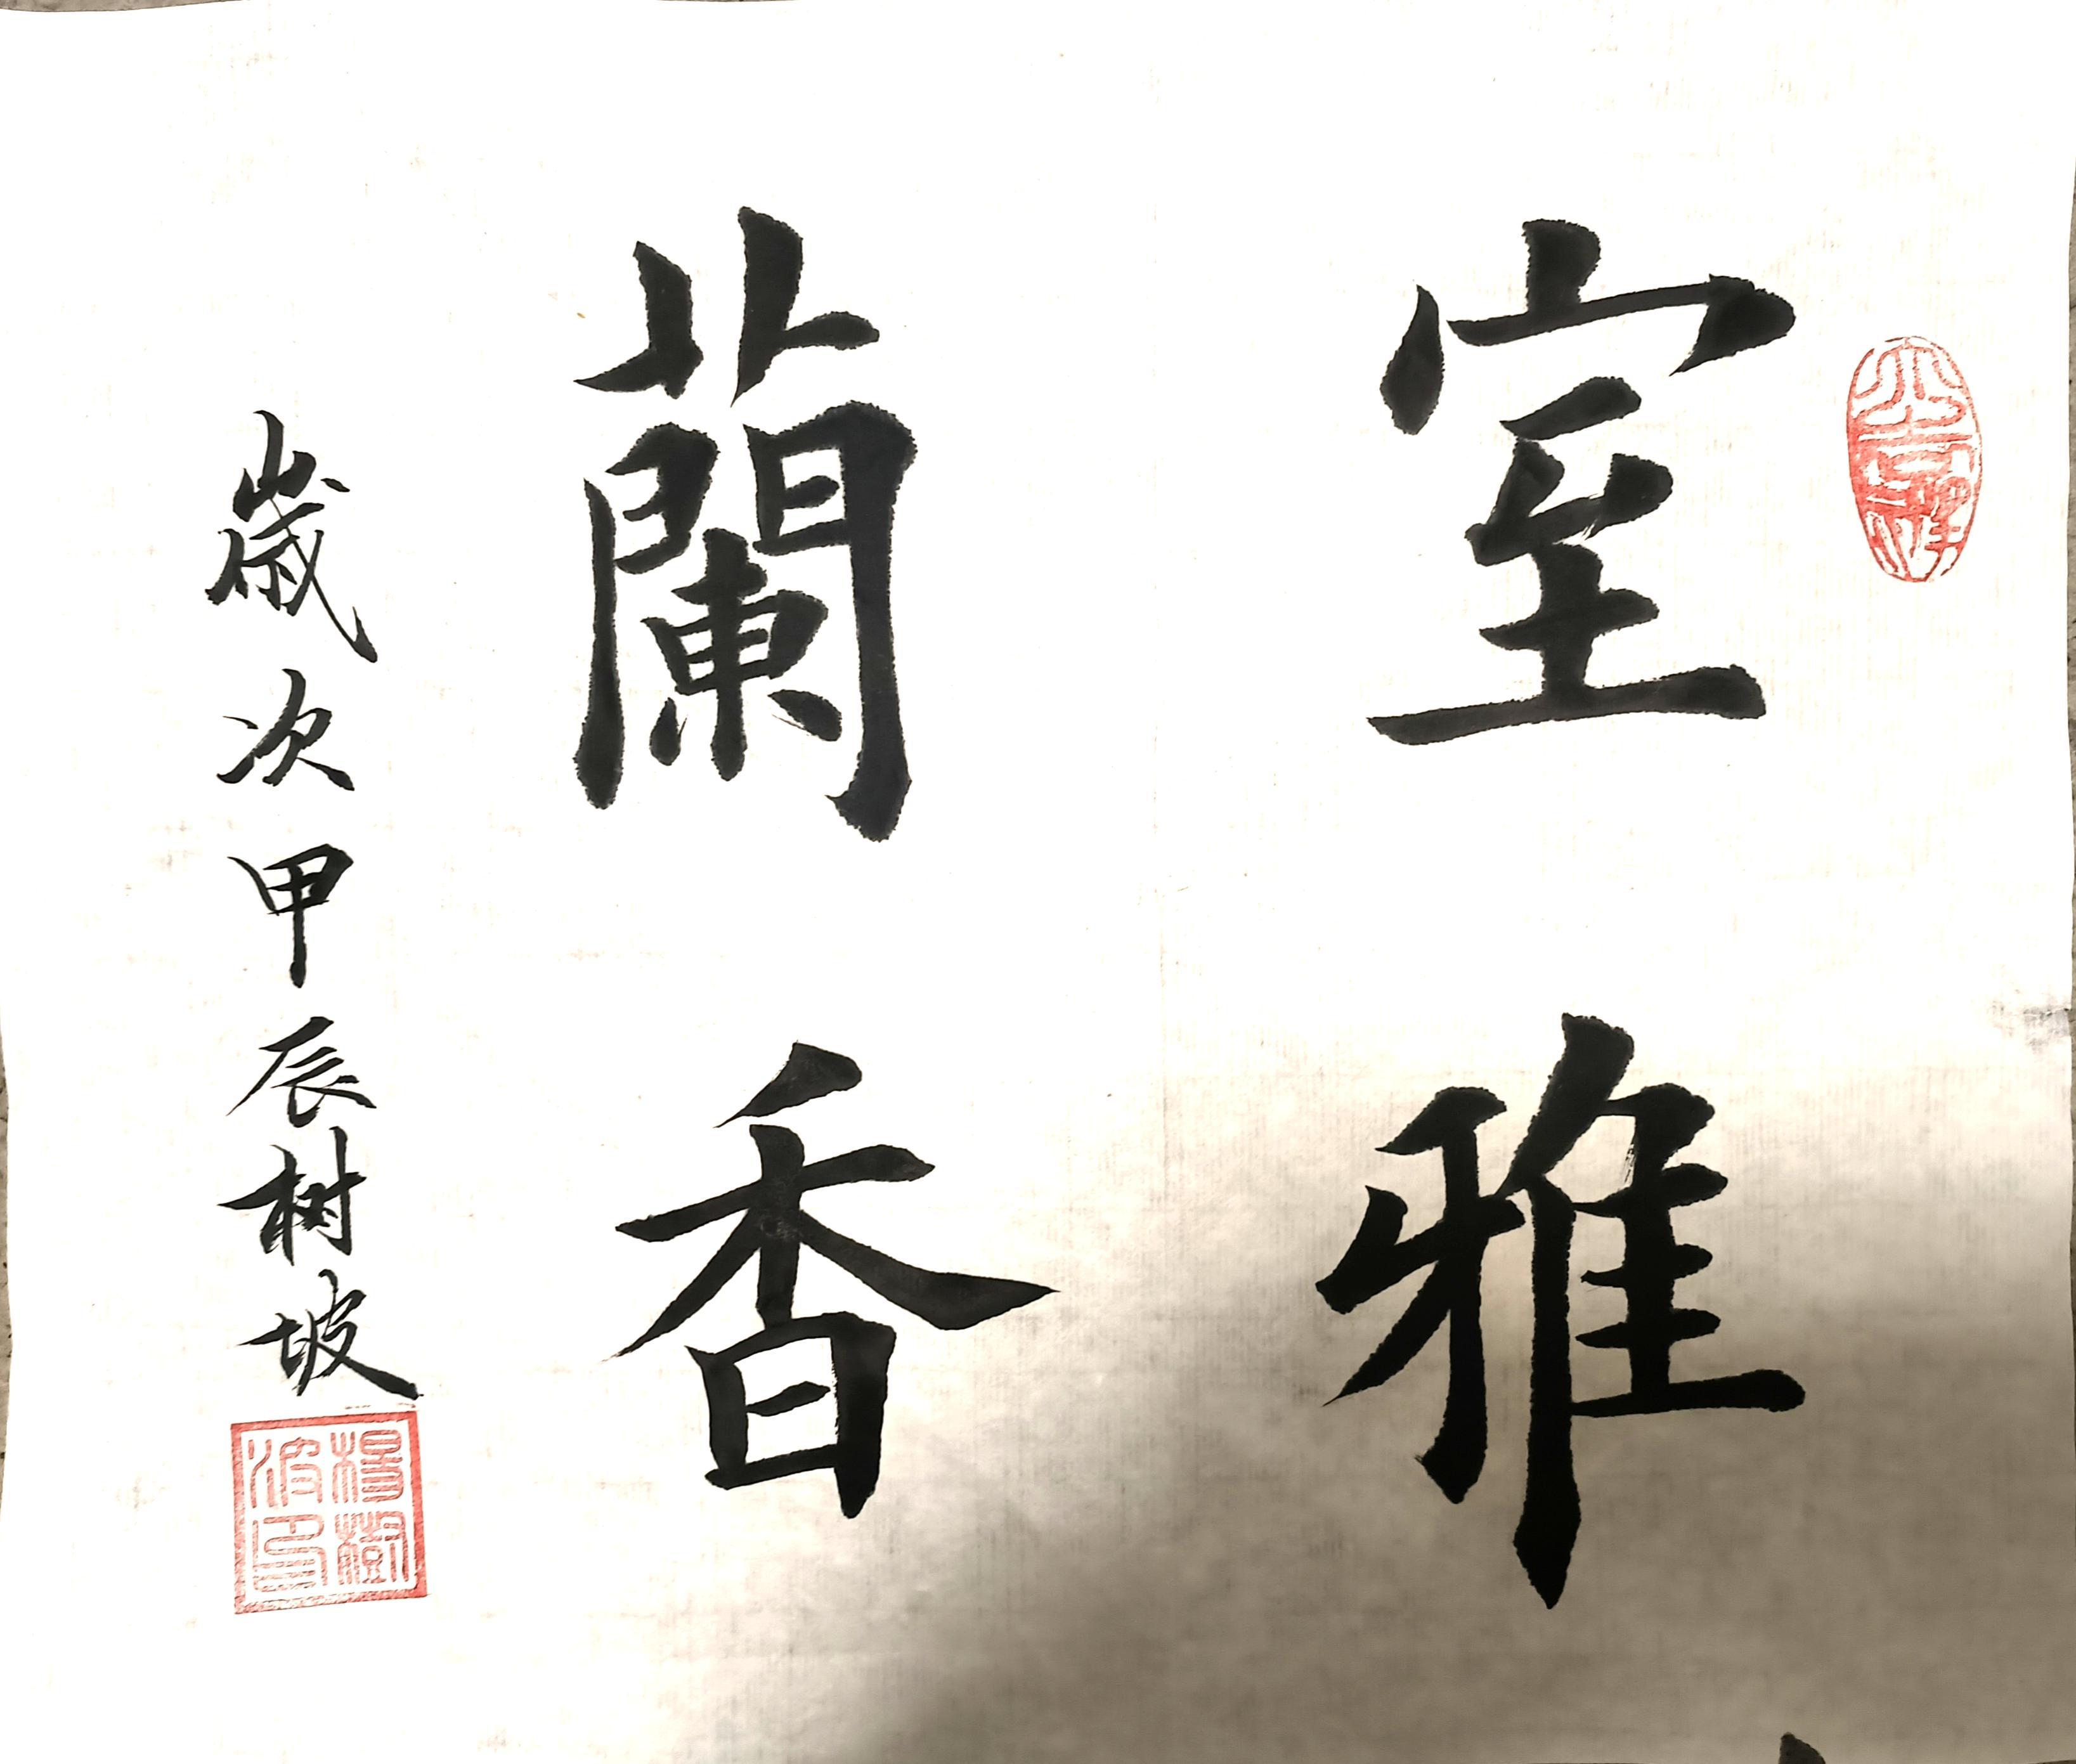 室雅
蘭香
歲次甲辰树坡
楊樹
坡印